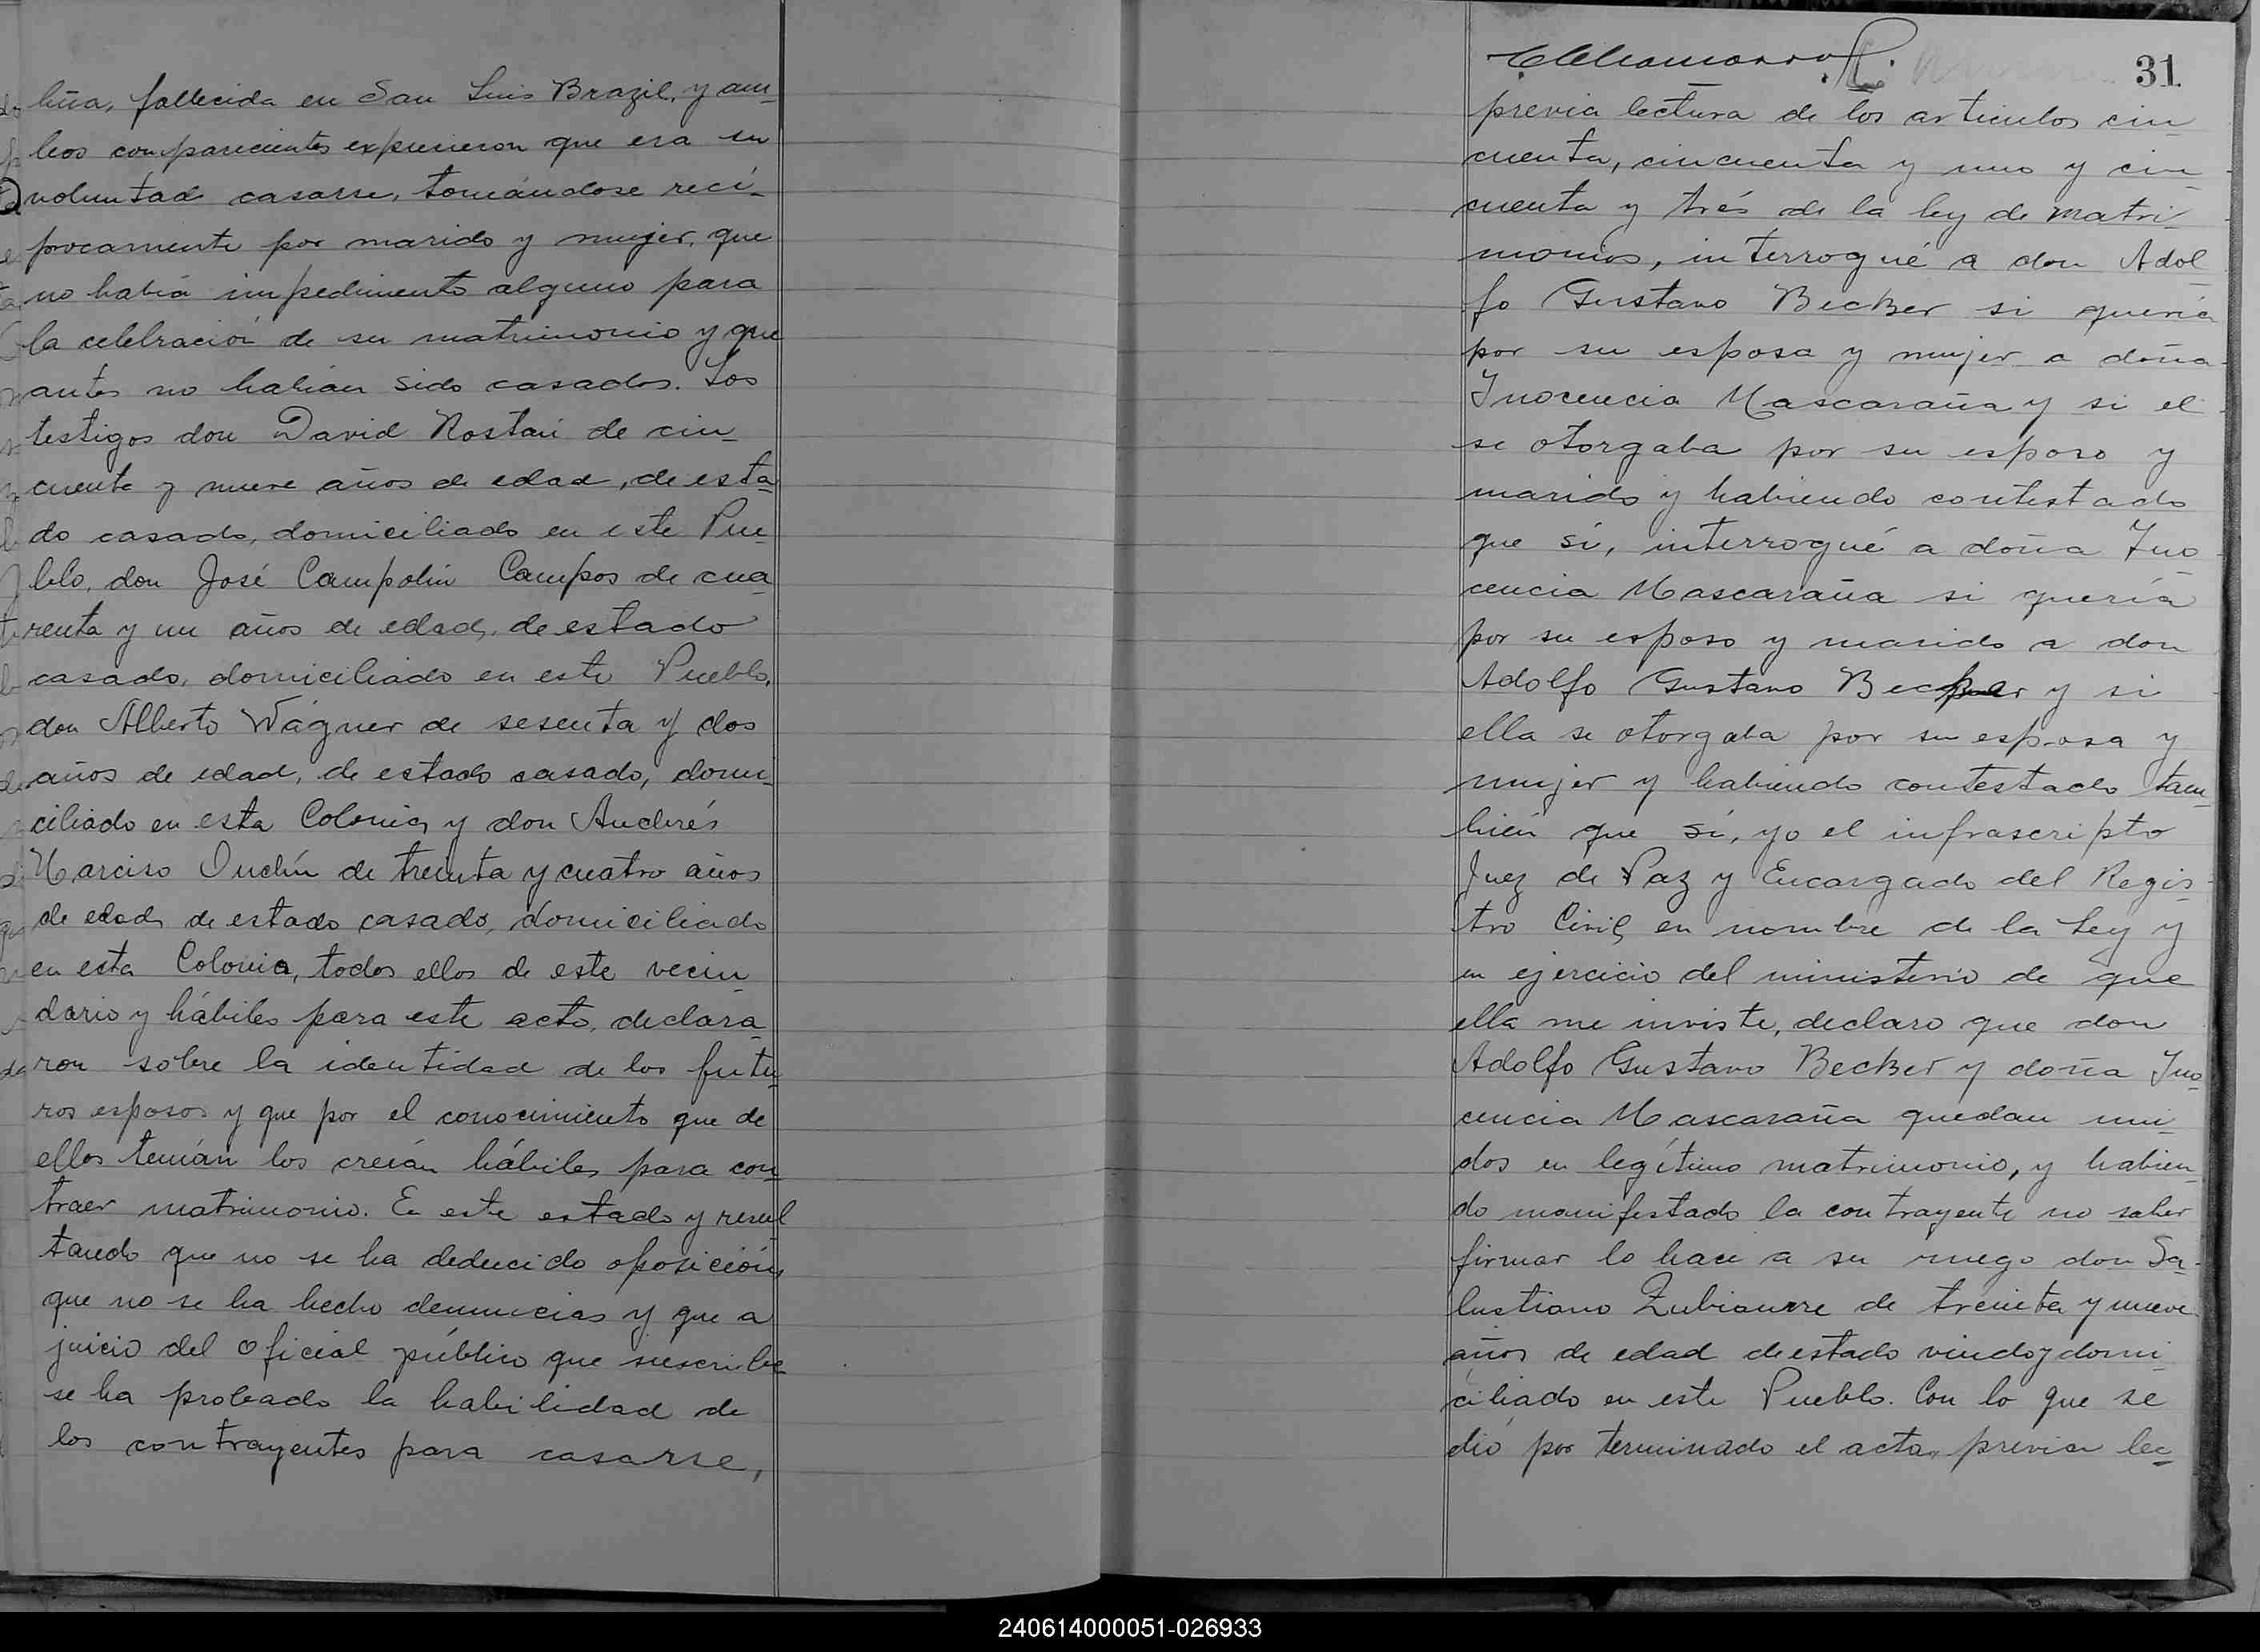 leña, fallecida en San Luis Brazil, y am-
bos comparecientes expusieron que era su
voluntad casarse, tomándose recí-
procamente por marido y mujer, que
no había impedimento alguno para
la celebración de su matrimonio y que
antes no habían sido casados. Los
testigos don David Rostán de cin-
cuenta y nueve años de edad, de esta-
do casado, domiciliado en este Pue-
blo, don José Campolin Campos de cua-
renta y un años de edad, de estado
casado, domiciliado en este Pueblo,
don Alberto Wágner de sesenta y dos
años de edad, de estado casado, domi-
ciliado en esta Colonia, y don Andrés
Narciso Indlín de treinta y cuatro años
de edad, de estado casado, domiciliado
en esta Colonia, todos ellos de este vecin-
dario y hábiles para este acto, declara-
ron sobre la identidad de los futu-
ros esposos y que por el conocimiento que de
ellos tenían los creían hábiles para con-
traer matrimonio. En este estado y resul-
tando que no se ha deducido oposición,
que no se ha hecho denuncias y que a
juicio del oficial público que suscribe
se ha probado la habilidad de
los contrayentes para casarse,
31
previa lectura de los articulos cin-
cuenta, cincuenta y uno y cin-
cuenta y trés de la ley de matri-
monios, interrogué a don Adol-
fo Gustavo Becker si quería
por su esposa y mujer a doña
Inocencia Mascaraña y si el
se otorgaba por su esposo y
marido y habiendo contestado
que sí, interrogué a doña Ino-
cencia Mascaraña si quería
por su esposo y marido a don
Adolfo Gustavo Becker y si
ella se otorgaba por su esposa y
mujer y habiendo contestado tam-
bién que sí, yo el infrascripto
Juez de Paz y Encargado del Regis-
tro Civil, en nombre de la Ley y
en ejercicio del ministerio de que
ella me inviste, declaro que don
Adolfo Gustavo Becker y doña Ino-
cencia Mascaraña quedan uni-
dos en legítimo matrimonio, y habien-
do manifestado la contrayente no saber
firmar lo hace a su ruego don Sa-
lustiano Zubiaurre de treinta y nueve
años de edad de estado viudo y domi-
ciliado en este Pueblo. Con lo que se
dió por terminado el acta, previa lec-
240614000051-026933